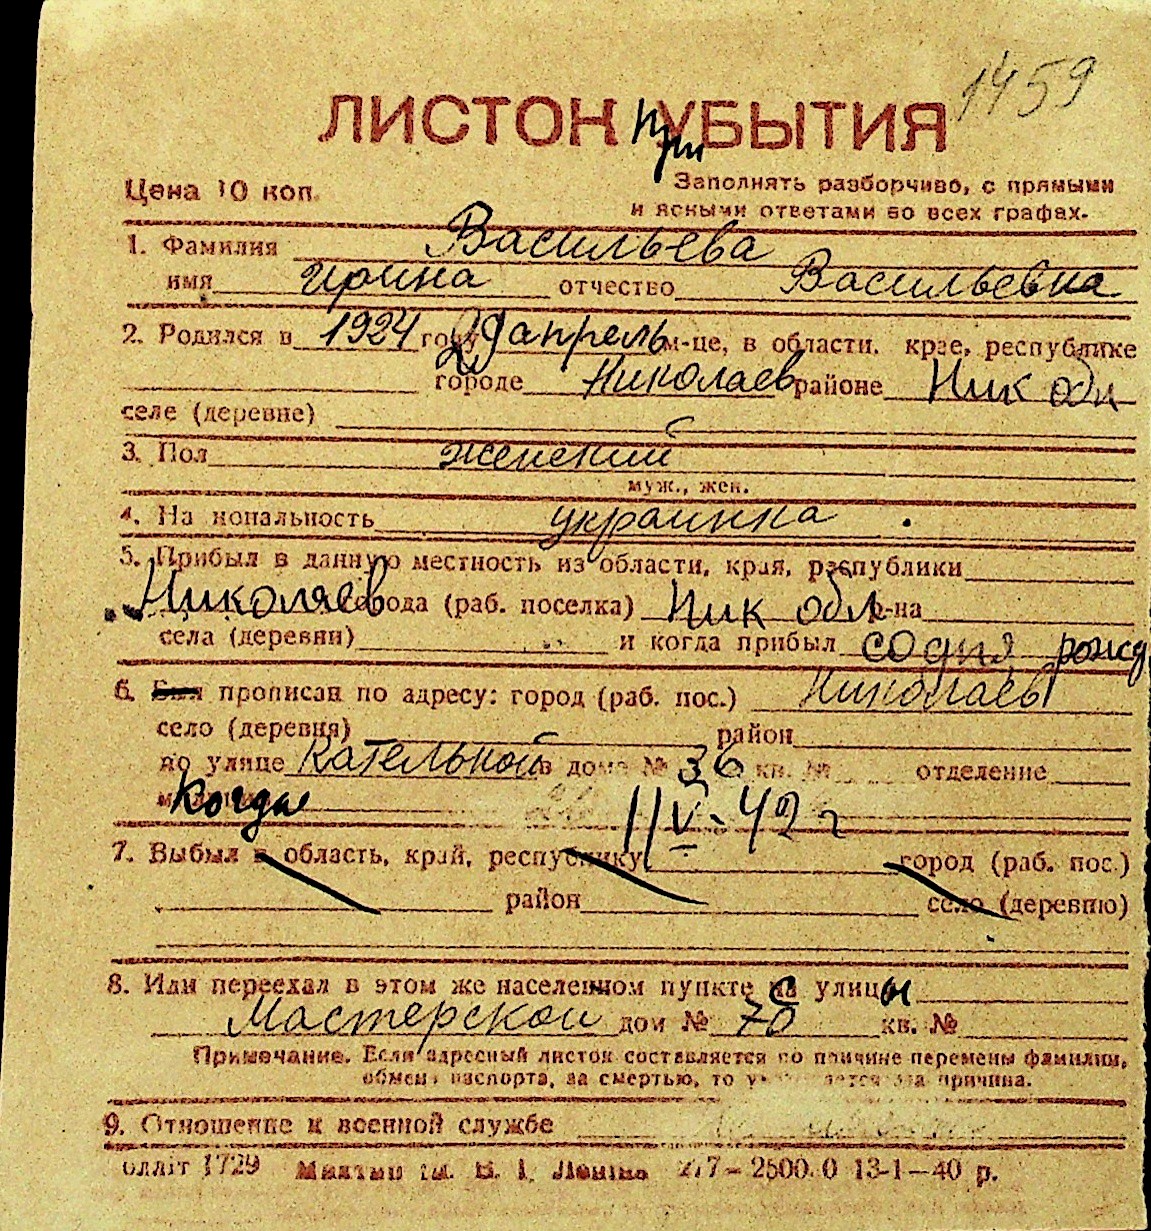 1459
ЛИСТОК при УБЫТИЯ
Цена 10 коп.
Заполнять разборчиво, с прямыми
и ясными ответами во всех графах.
1. Фамилия Васильева
имя Ирина отчество Васильевна
2. Родился в 1924 году 29 апрель м-це, в области, крае, республике
городе Николаев районе Ник обл
селе (деревне)
3. Пол женский
муж., жен.
4. На иональность украинка
5. Прибыл в данную местность из области, края, республики
Николаев города (раб. поселка) Ник обл р-на
села (деревни) и когда прибыл со дня рожд
6. Был прописан по адресу: город (раб. пос.) Николаев
село (деревня) район
по улице Кательной в доме № 36 кв. № отделение
когда 11 V - 42 г
7. Выбыл в область, край, республику город (раб. пос.)
район село (деревню)
8. Или переехал в этом же населенном пункте на улицы
Мастерской дом № 78 кв. №
Примечание. Если адресный листок составляется по причине перемены фамилии,
обмена паспорта, за смертью, то эта причина.
9. Отношение к военной службе
1729 2500.0 13-1-40 р.